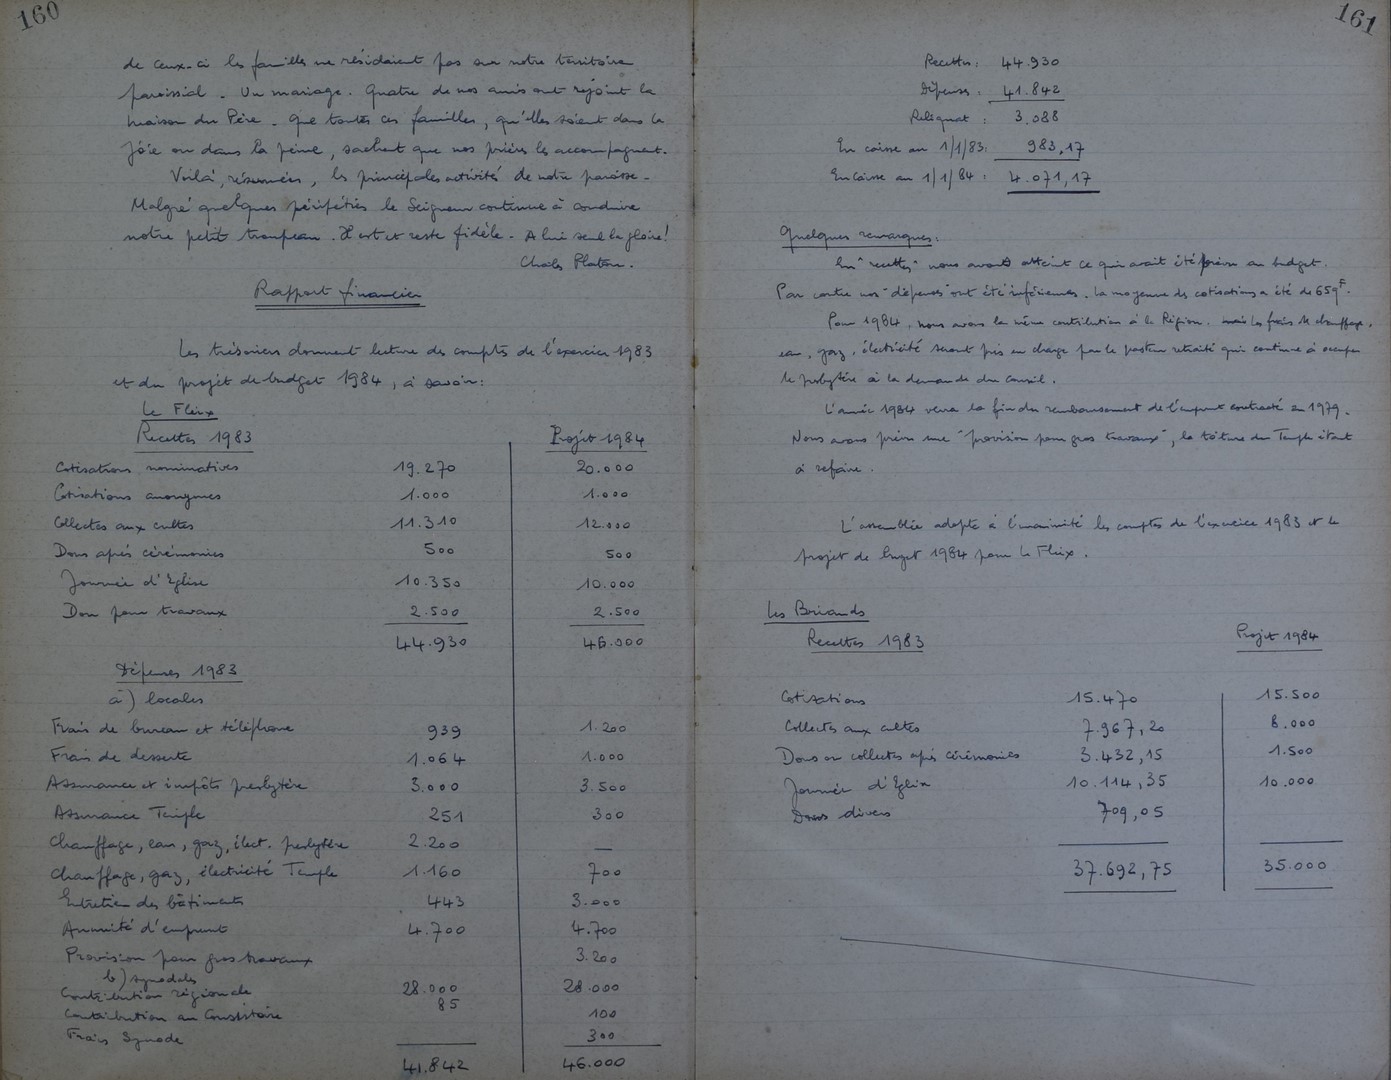 160
de ceux-ci les familles ne résidaient pas sur notre territoire
paroissial. Un mariage. Quatre de nos amis ont rejoint la
maison du Père. Que toutes ces familles, qu'elles soient dans la
joie ou dans la peine, sachent que nos prières les accompagnent.
Voilà, résumées, les principales activités de notre paroisse.
Malgré quelques péripéties le Seigneur continue à conduire
notre petit troupeau. Il est et reste fidèle. A lui seul la gloire!
Charles Platon.
Rapport financier
Les trésoriers donnent lecture des comptes de l'exercice 1983
et du projet de budget 1984, à savoir:
Le Fleix
Recettes 1983 Projet 1984
Cotisations nominatives 19.270 20.000
Cotisations anonymes 1.000 1.000
Collectes aux cultes 11.310 12.000
Dons après cérémonies 500 500
Journée d'Eglise 10.350 10.000
Don pour travaux 2.500 2.500
44.930 46.000
Dépenses 1983
a) locales
Frais de bureau et téléphone 939 1.200
Frais de desserte 1.064 1.000
Assurance et impôts presbytère 3.000 3.500
Assurance Temple 251 300
Chauffage, eau, gaz, élect. presbytère 2.200 —
Chauffage, gaz, électricité Temple 1.160 700
Entretien des bâtiments 443 3.000
Annuité d'emprunt 4.700 4.700
Provision pour gros travaux 3.200
b) synodales
Contribution régionale 28.000 28.000
Contribution au Consistoire 85 100
Frais Synode 300
41.842 46.000
161
Recettes: 44.930
Dépenses: 41.842
Reliquat: 3.088
En caisse au 1/1/83: 983,17
En caisse au 1/1/84: 4.071,17
Quelques remarques:
En "recettes" nous avons atteint ce qui avait été prévu au budget.
Par contre nos "dépenses" ont été inférieures. La moyenne des cotisations a été de 659F.
Pour 1984, nous avons la même contribution à la Région, mais les frais de chauffage,
eau, gaz, électricité seront pris en charge par le pasteur retraité qui continue à occuper
le presbytère à la demande du Conseil.
L'année 1984 verra la fin du remboursement de l'emprunt contracté en 1979.
Nous avons prévu une "provision pour gros travaux", la toiture du Temple étant
à refaire.
L'assemblée adopte à l'unanimité les comptes de l'exercice 1983 et le
projet de buget 1984 pour Le Fleix.
Les Briands
Recettes 1983 Projet 1984
Cotisations 15.470 15.500
Collectes aux cultes 7.967,20 8.000
Dons ou collectes après cérémonies 3.432,15 1.500
Journée d'Eglise 10.114,35 10.000
Dons divers 709,05
37.692,75 35.000